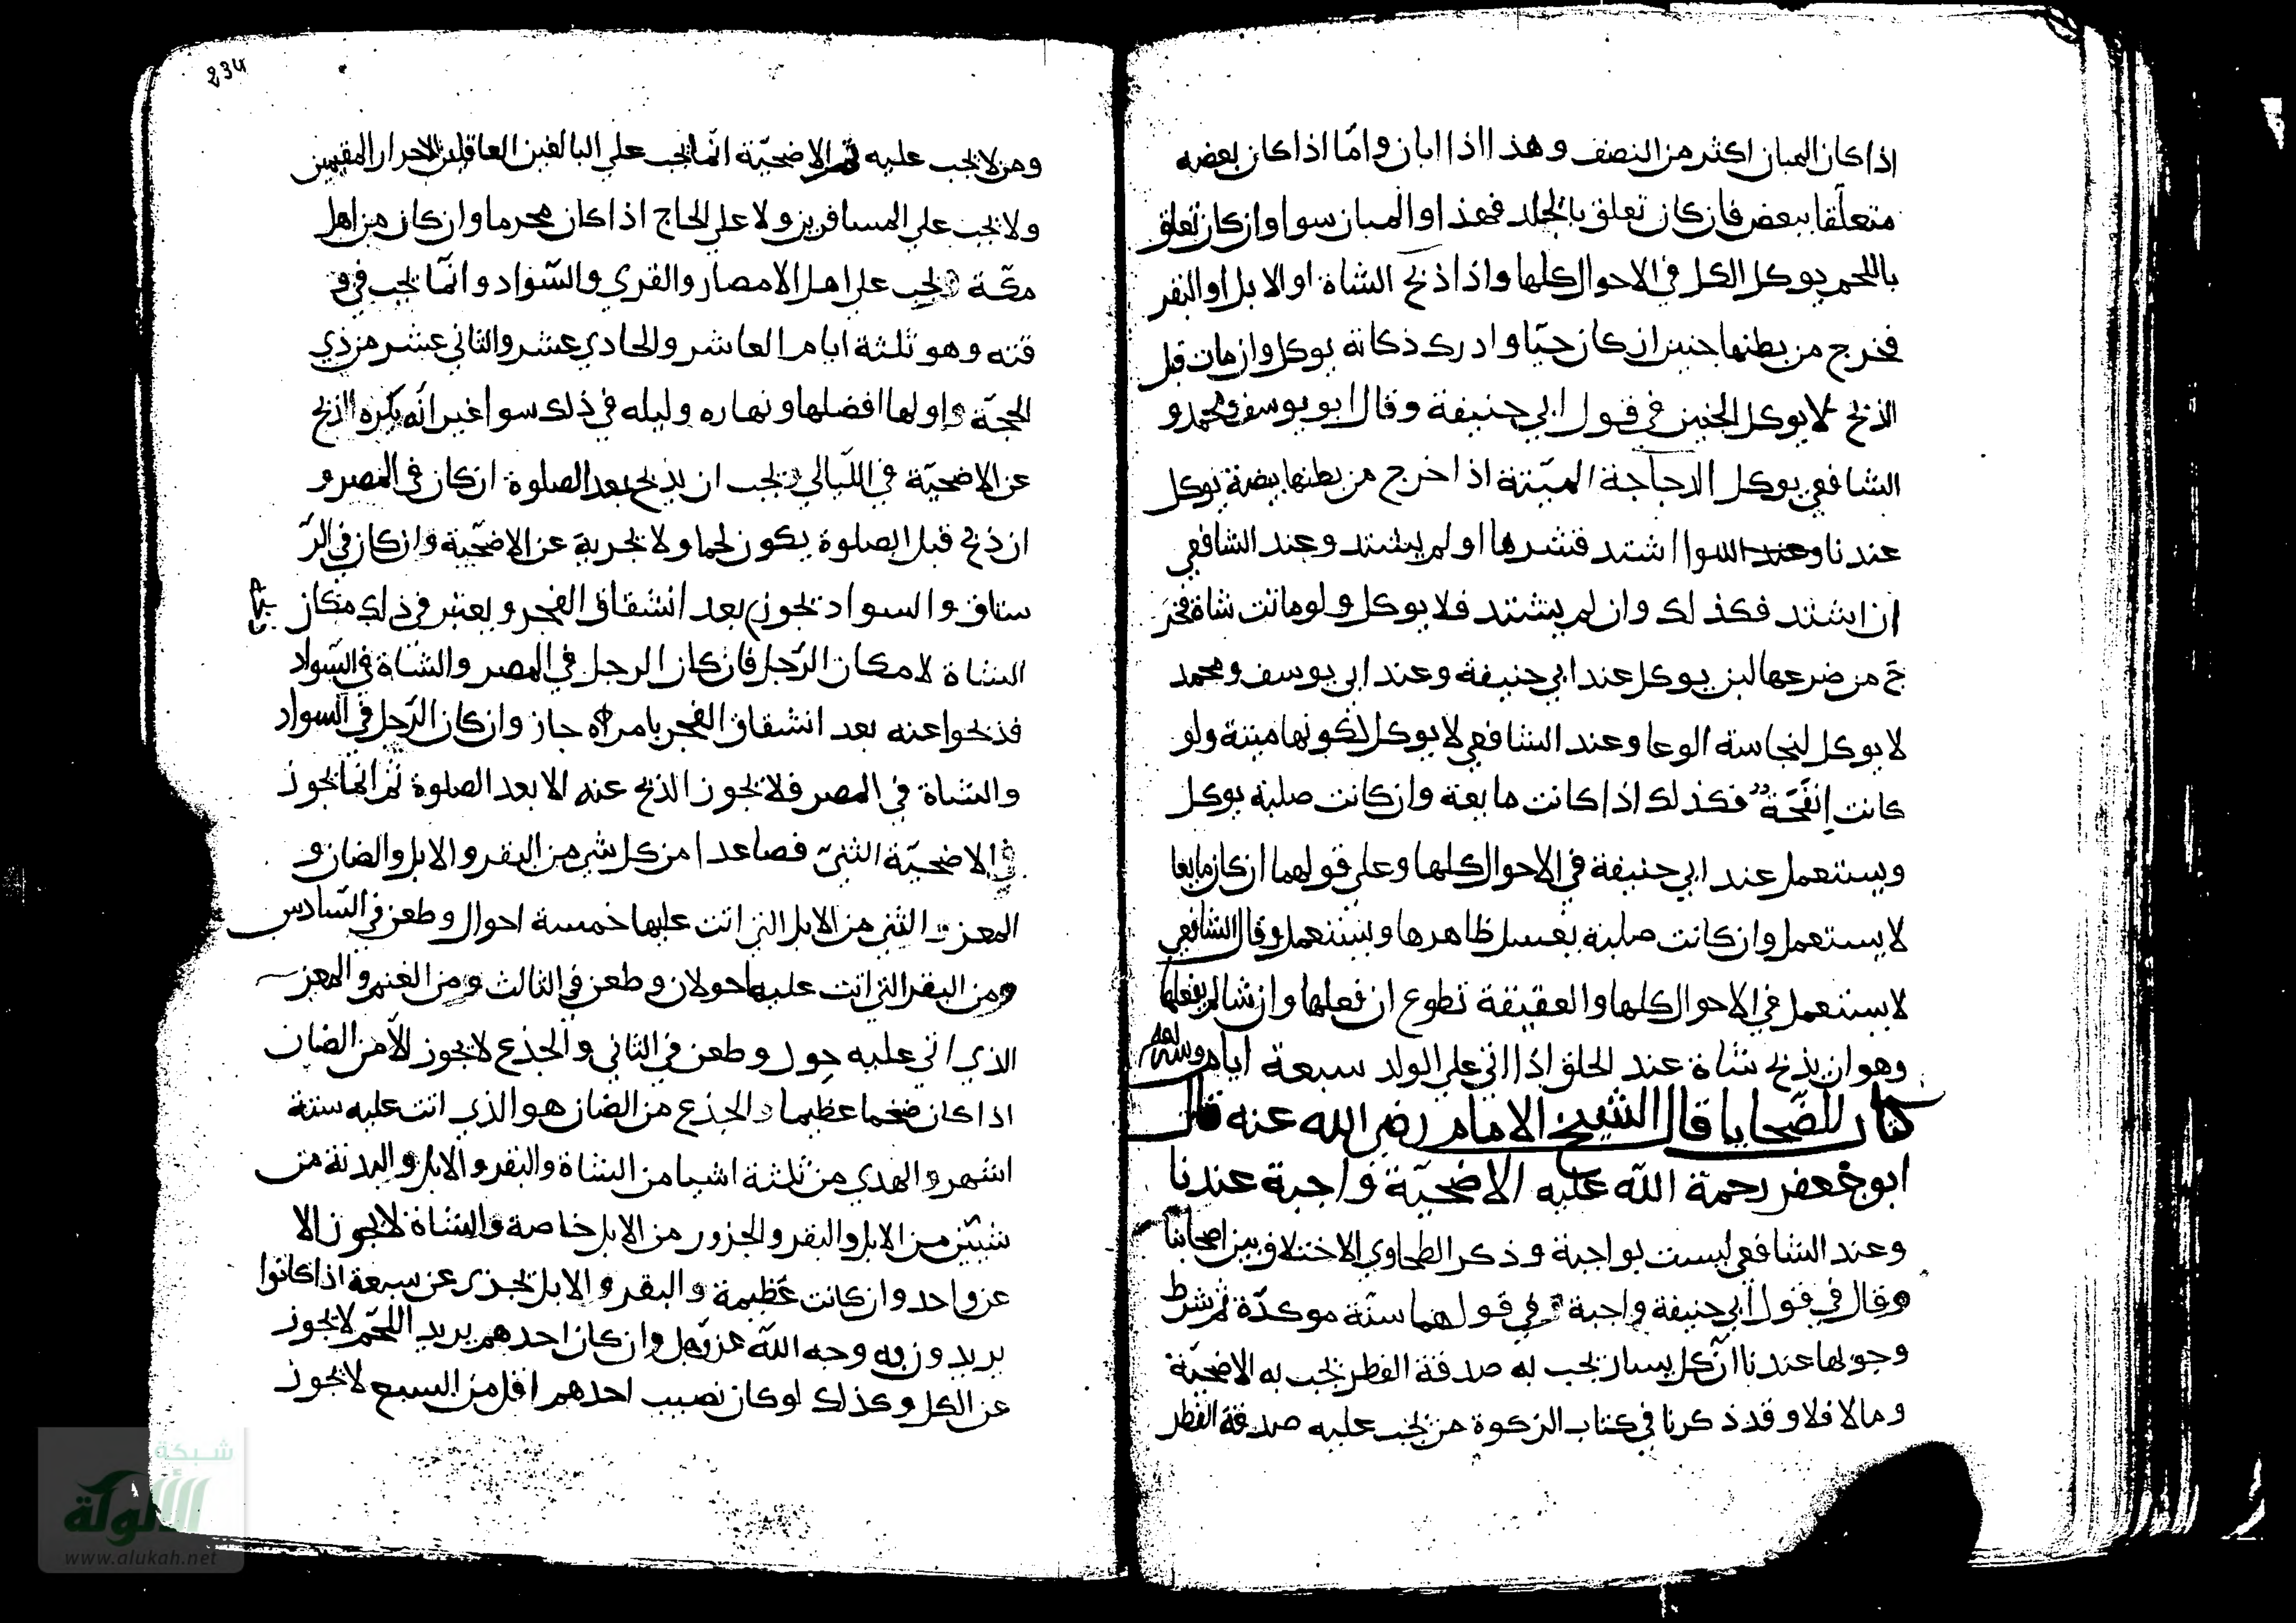 اذا كان المبان اكثر من النصف وهذا اذا ابان واما اذا كان بعضه
متعلقا ببعض فان كان تعلق بالجلد فهذا والمبان سوا وان كان تعلق
باللحم يوكل الكل في الاحوال كلها واذا ذبح الشاة او الابل او البقر
فخرج من بطنها جنين ان كان حيا وادرك ذكاته يوكل وان مات قبل
الذبح لا يوكل الجنين في قول ابي حنيفة وقال ابو يوسف ومحمد و
الشافعي يوكل الدجاجة الميتة اذا خرج من بطنها بيضة يوكل
عندنا سوا اشتد قشرها او لم يشتد وعند الشافعي
ان اشتد فكذلك وان لم يشتد فلا يوكل ولو ماتت شاة فخر
ج من ضرعها لبن يوكل عند ابي حنيفة وعند ابي يوسف ومحمد
لا يوكل لنجاسة الوعا وعند الشافعي لا يوكل لكونها ميتة ولو
كانت إنفَحَة فكذلك اذا كانت مايعة وان كانت صلبة يوكل
ويستعمل عند ابي حنيفة في الاحوال كلها وعلى قولهما ان كان مايعا
لا يستعمل وان كانت صلبة يغسل ظاهرها ويستعمل وقال الشافعي
لا يستعمل في الاحوال كلها والعقيقة تطوع ان فعلها وان شا لم يفعلها
وهو ان يذبح شاة عند الحلق اذا اتي علي الولد سبعة ايام
كتاب الضحايا قال الشيخ الامام رضي الله عنه قال
ابو جعفر رحمة الله عليه الاضحية واجبة عندنا
وعند الشافعي ليست بواجبة وذكر الطحاوي الاختلاف بين اصحابنا
وقال في قول ابي حنيفة واجبة وفي قولهما سنة موكدة ثم شرط
وجوبها عندنا ان كل يسار يجب به صدقة الفطر يجب به الاضحية
وما لا فلا وقد ذكرنا في كتاب الزكوة من يجب عليه صدقة الفطر
234
ومن لا يجب عليه ثم الاضحية انما يجب علي البالغين العاقلين الاحرار المقيمين
ولا يجب علي المسافرين ولا علي الحاج اذا كان محرما وان كان من اهل
مكة ويجب علي اهل الامصار والقري والسواد وانما يجب في و
قته وهو ثلثة ايام العاشر والحادي عشر والثاني عشر من ذي
الحجة واولها افضلها ونهاره وليله في ذلك سوا غير انه يكره الذبح
عن الاضحية في الليالي ويجب ان يذبح بعد الصلوة ان كان في المصر و
ان ذبح قبل الصلوة يكون لحما ولا يجزية عن الاضحية وان كان في الر
ستاق والسواد يجوز بعد انشقاق الفجر ويعتبر في ذلك مكان
الشاة لا مكان الرجل فان كان الرجل في المصر والشاة في السواد
فذبحوا عنه بعد انشقاق الفجر بامره جاز وان كان الرجل في السواد
والشاة في المصر فلا يجوز الذبح عنه الا بعد الصلوة ثم انما يجوز
في الاضحية الثني فصاعدا من كل شي من البقر والابل والضان و
المعز والثني من الابل التي اتت عليها خمسة احوال وطعن في السادس
ومن البقر التي اتت عليها حولان وطعن في الثالث ومن الغنم والمعز
الذي اتي عليه حول وطعن في الثاني والجذع لا يجوز الا من الضان
اذا كان ضخما عظيما والجذع من الضان هو الذي اتت عليه ستة
اشهر والهدي من ثلثة اشيا من الشاة والبقر والابل والبدنة من
شيئين من الابل والبقر والجزور من الابل خاصة والشاة لا يجوز الا
عن واحد وان كانت عظيمة والبقر والابل يجزي عن سبعة اذا كانوا
يريدون به وجه الله عز وجل وان كان احدهم يريد اللحم لا يجوز
عن الكل وكذلك لو كان نصيب احدهم اقل من السبع لا يجوز
شبكة
الألوكة
www.alukah.net